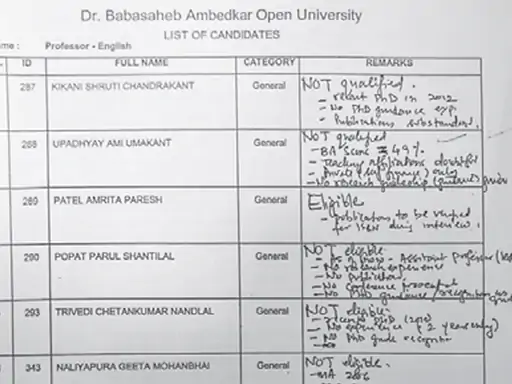 Dr. Babasaheb Ambedkar Open University
LIST OF CANDIDATES
ame : Professor - English
ID FULL NAME CATEGORY REMARKS
287 KIKANI SHRUTI CHANDRAKANT General NOT qualified.
- recent PhD in 2012
- No PhD guidance exp.
- Publications substandard.
288 UPADHYAY AMI UMAKANT General NOT qualified
- BA Score 49%
- Teaching affiliations doubtful
- private only
- No research
289 PATEL AMRITA PARESH General Eligible
- publications to be verified
for ISBN during interview.
290 POPAT PARUL SHANTILAL General NOT eligible
- Assistant professor
- No research experience
- No publication
- No conference
- No PhD guidance / recognition
293 TRIVEDI CHETANKUMAR NANDLAL General NOT eligible
- recent PhD
- No experience (2 years only)
- No PhD guide
343 NALIYAPURA GEETA MOHANBHAI General NOT eligible.
- MA